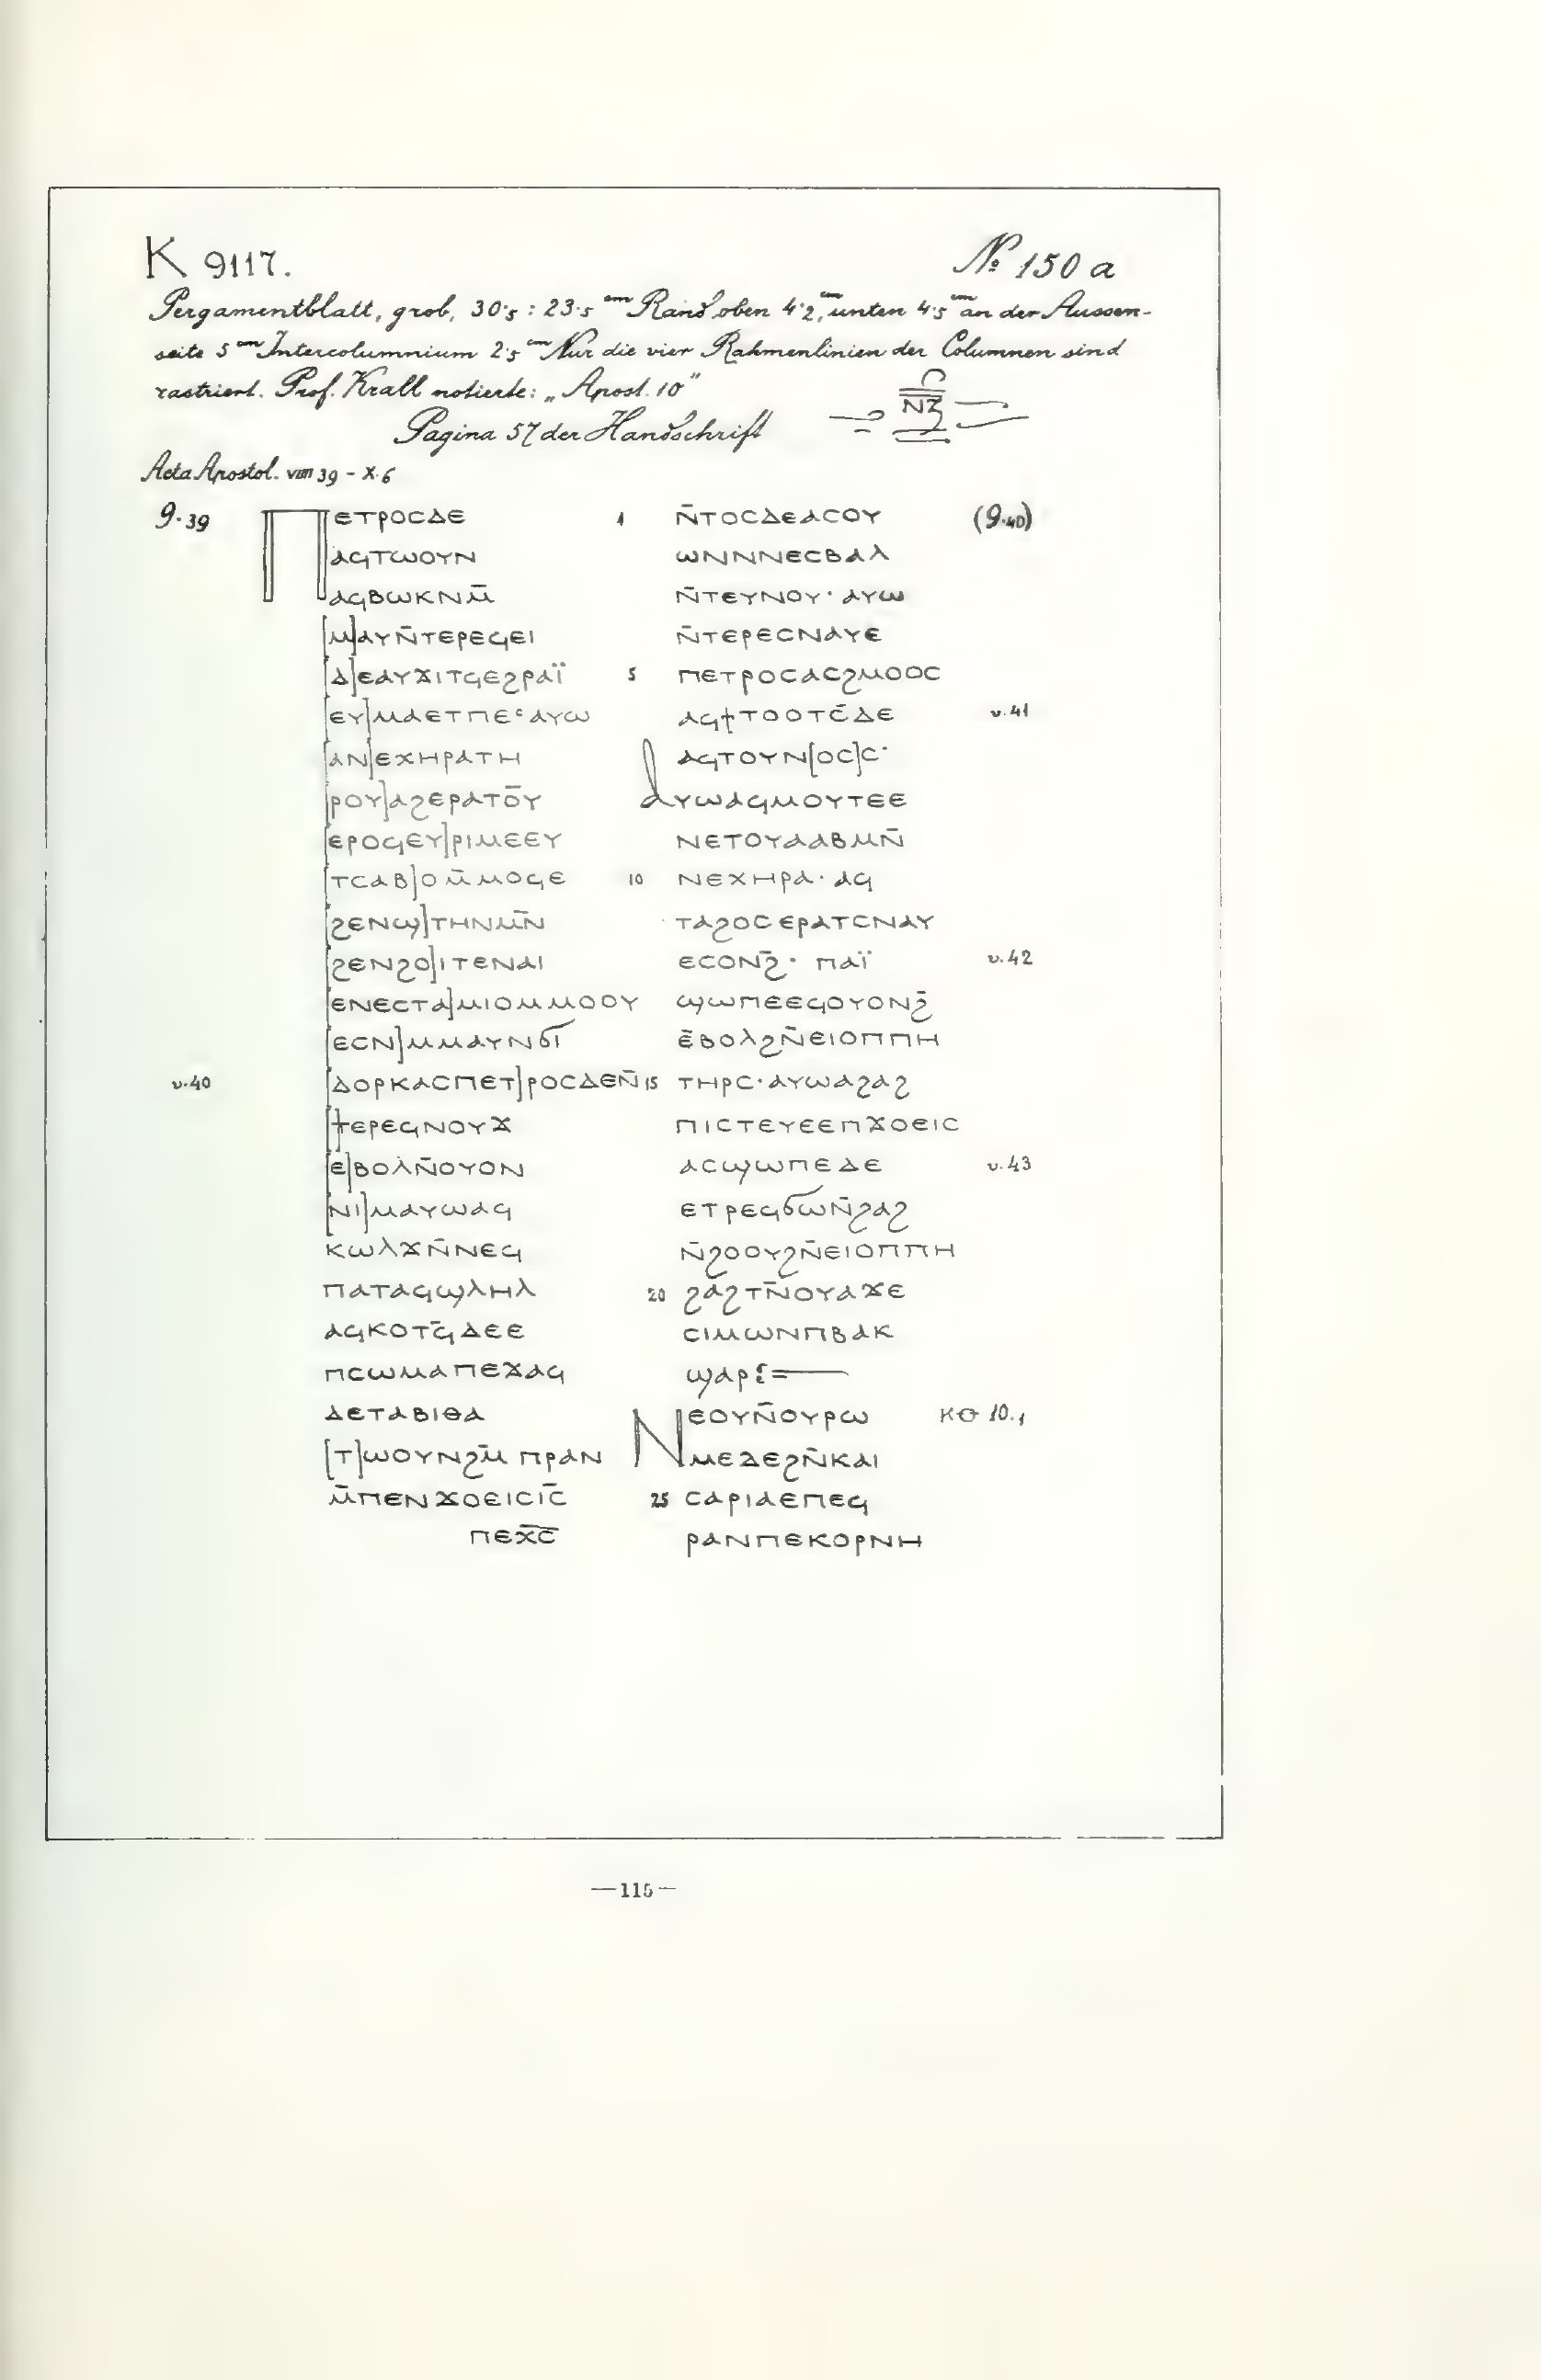 K 9117.
№ 150 a
Pergamentblatt, grob, 30·5 : 23·5 cm Rand oben 4·2 cm, unten 4·5 cm an der Aussen-
seite 5 cm Intercolumnium 2·5 cm Nur die vier Rahmenlinien der Columnen sind
rastriert. Prof. Krall notierte: „Apost. 10"
Pagina 57 der Handschrift
ⲚⲌ
Acta Apostol. VIIII 39 – X. 6
9·39 ⲠⲈⲦⲢⲞⲤⲆⲈ
ⲀϤⲦⲰⲞⲨⲚ
ⲀϤⲂⲰⲔⲚⲘ̄
[Ⲙ]ⲀⲨⲚ̄ⲦⲈⲢⲈϤⲈⲒ
[Ⲇ]ⲈⲀⲨϪⲒⲦϤⲈϨⲢⲀⲒ̈
[ⲈⲨ]ⲘⲀⲈⲦⲠⲈᶜⲀⲨⲰ
[ⲀⲚ]ⲈⲬⲎⲢⲀⲦⲎ
[ⲢⲞⲨ]ⲀϨⲈⲢⲀⲦⲞ̄Ⲩ
[ⲈⲢⲞϤⲈⲨ]ⲢⲒⲘⲈⲈⲨ
[ⲦⲤⲀⲂ]ⲞⲘ̄ⲘⲞϤⲈ
[ϨⲈⲚϢ]ⲦⲎⲚⲘⲚ̄
[ϨⲈⲚϨⲞ]ⲒⲦⲈⲚⲀⲒ
[ⲈⲚⲈⲤⲦⲀ]ⲘⲒⲞⲘⲘⲞⲞⲨ
[ⲈⲤⲚ]ⲘⲘⲀⲨⲚϬⲒ
v.40 [ⲆⲞⲢⲔⲀⲤⲠⲈⲦ]ⲢⲞⲤⲆⲈⲚ̄
[ⲦⲈⲢⲈϤⲚⲞⲨϪ
[Ⲉ]ⲂⲞⲖⲚ̄ⲞⲨⲞⲚ
[ⲚⲒ]ⲘⲀⲨⲰⲀϤ
ⲔⲰⲖϪⲚ̄ⲚⲈϤ
ⲠⲀⲦⲀϤϢⲖⲎⲖ
ⲀϤⲔⲞⲦϤ̄ⲆⲈⲈ
ⲠⲤⲰⲘⲀⲠⲈϪⲀϤ
ⲆⲈⲦⲀⲂⲒⲐⲀ
[Ⲧ]ⲰⲞⲨⲚϨⲘ̄ ⲠⲢⲀⲚ
Ⲙ̄ⲠⲈⲚϪⲞⲈⲒⲤⲒ̄Ⲥ̄
ⲠⲈⲬ̄Ⲥ̄
1 Ⲛ̄ⲦⲞⲤⲆⲈⲀⲤⲞⲨ (9·40)
ⲰⲚⲚⲚⲈⲤⲂⲀⲖ
Ⲛ̄ⲦⲈⲨⲚⲞⲨ· ⲀⲨⲰ
Ⲛ̄ⲦⲈⲢⲈⲤⲚⲀⲨⲈ
5 ⲠⲈⲦⲢⲞⲤⲀⲤϨⲘⲞⲞⲤ
ⲀϤϮⲦⲞⲞⲦⲤ̄ⲆⲈ v.41
ⲀϤⲦⲞⲨⲚ[ⲞⲤ]Ⲥ·
ⲀⲨⲰⲀϤⲘⲞⲨⲦⲈⲈ
ⲚⲈⲦⲞⲨⲀⲀⲂⲘⲚ̄
10 ⲚⲈⲬⲎⲢⲀ· ⲀϤ
ⲦⲀϨⲞⲤⲈⲢⲀⲦⲤⲚⲀⲨ
ⲈⲤⲞⲚϨ̄· ⲠⲀⲒ̈ v.42
ϢⲰⲠⲈⲈϤⲞⲨⲞⲚϨ̄
ⲈⲂⲞⲖϨⲚ̄ⲈⲒⲞⲠⲠⲎ
15 ⲦⲎⲢⲤ· ⲀⲨⲰⲀϨⲀϨ
ⲠⲒⲤⲦⲈⲨⲈⲈⲠϪⲞⲈⲒⲤ
ⲀⲤϢⲰⲠⲈⲆⲈ v.43
ⲈⲦⲢⲈϤϬⲰⲚ̄ϨⲀϨ
Ⲛ̄ϨⲞⲞⲨϨⲚ̄ⲈⲒⲞⲠⲠⲎ
20 ϨⲀϨⲦⲚ̄ⲞⲨⲀϪⲈ
ⲤⲒⲘⲰⲚⲠⲂⲀⲔ
ϢⲀⲢ
ⲚⲈⲞⲨⲚ̄ⲞⲨⲢⲰ ⲔⲐ 10.1
ⲘⲈⲆⲈϨⲚ̄ⲔⲀⲒ
25 ⲤⲀⲢⲒⲀⲈⲠⲈϤ
ⲢⲀⲚⲠⲈⲔⲞⲢⲚⲎ
—115—